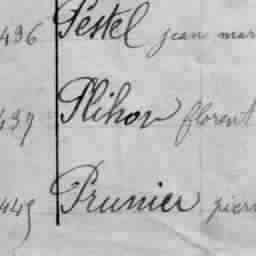 496 Pestel jean mar
439 Plihon florent
445 Prunier pierr